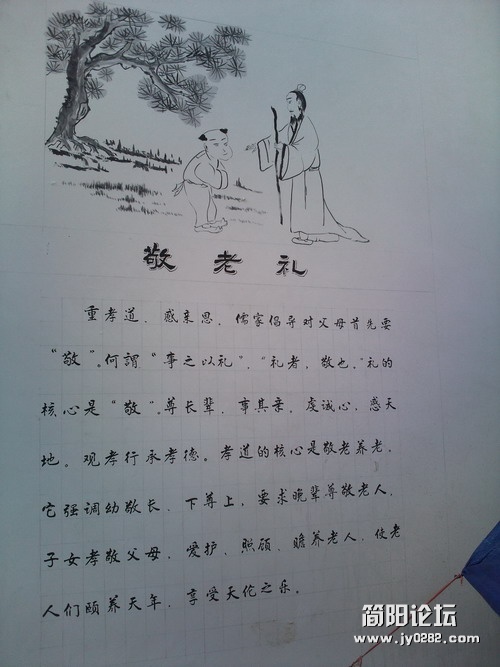 敬老礼
重孝道、感亲恩，儒家倡导对父母首先要
“敬”。何謂“事之以礼”，“礼者，敬也，”礼的
核心是“敬”。尊长辈，事其亲，虔诚心，感天
地。观孝行承孝德。孝道的核心是敬老养老，
它强调幼敬长、下尊上，要求晚辈尊敬老人，
子女孝敬父母，爱护、照顾、赡养老人，使老
人们颐养天年，享受天伦之乐。
简阳论坛
www.jy0282.com